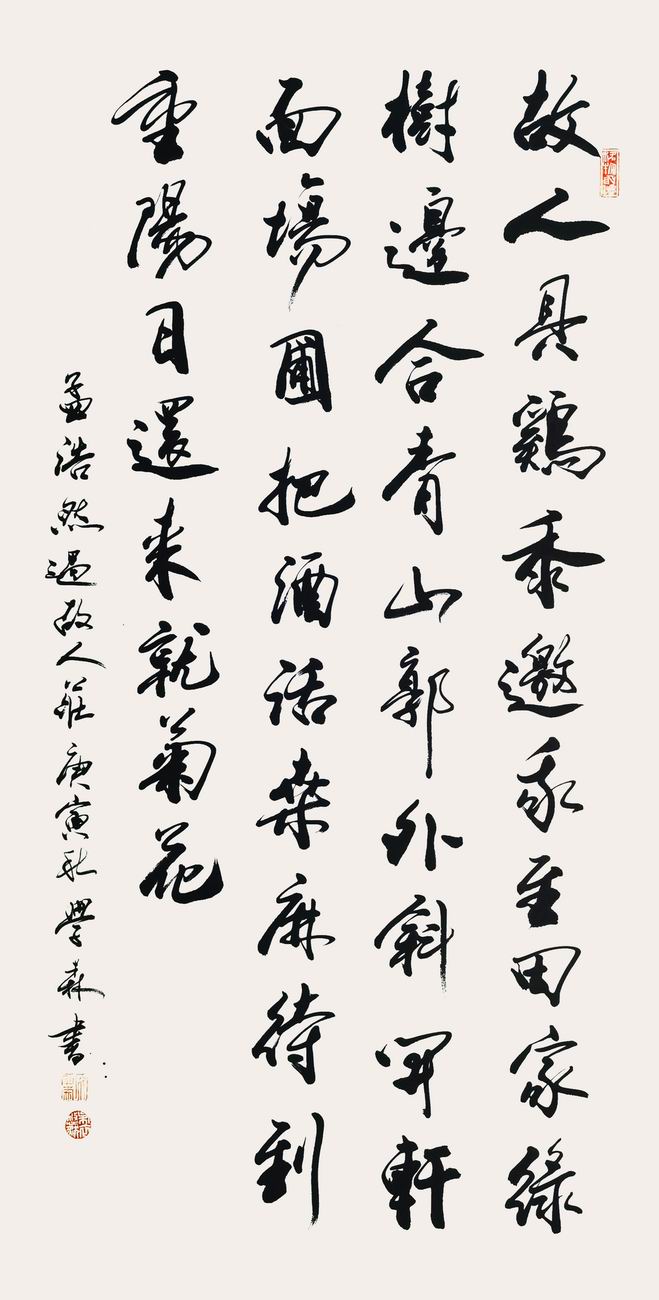 故人具鷄黍邀我至田家綠
樹邊合青山郭外斜開軒
面場圃把酒話桑麻待到
重陽日還來就菊花
孟浩然過故人莊庚寅秋學森書